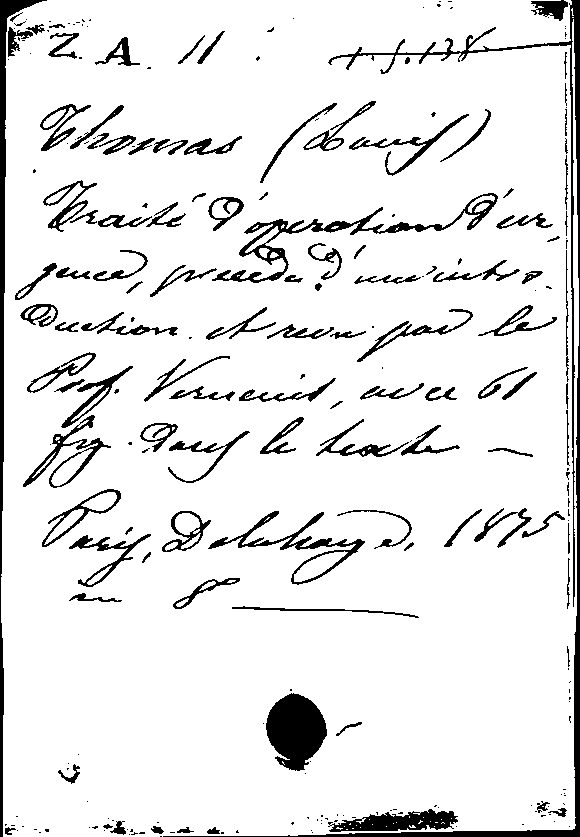 Z. A. 11. 1.5.138
Thomas (Louis)
Traité d'operation d'ur,
gence, précédé d'une intro-
duction et revu par le
Prof. Verneuil, avec 61
fig. dans le texte —
Paris, Delahaye, 1875
in 8º